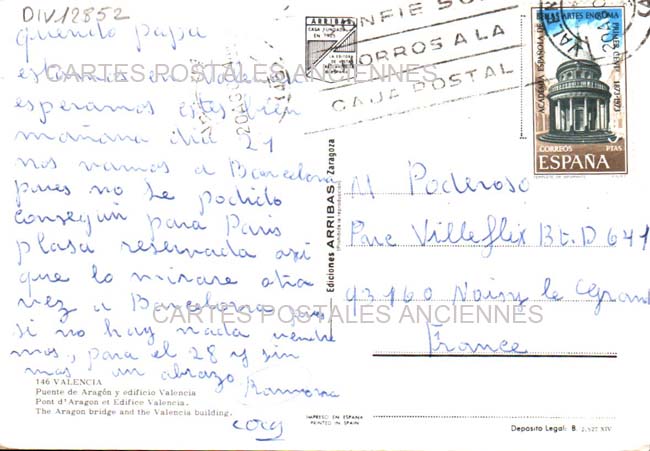 DIV12852
querido papa
estamos en Valencia
esperamos estes bien
mañana dia 21
nos vamos a Barcelona
pues no he podido
conseguir para Paris
plasa reservada asi
que lo mirare otra
vez a Barcelona pero
si no hay nada vendre
mos, para el 28 y sin
mas un abrazo Ramona
146 VALENCIA
Puente de Aragón y edificio Valencia
Pont d'Aragon et Edifice Valencia.
The Aragon bridge and the Valencia building.
CARTES POSTALES ANCIENNES
CARTES POSTALES ANCIENNES
ARRIBAS
CASA FUNDADA
EN 1905
CONFIE SUS
AHORROS A LA
CAJA POSTAL
Ediciones ARRIBAS - Zaragoza
(Prohibida la reproducción)
BELLAS ARTES EN ROMA
ACADEMIA ESPAÑOLA DE
PRIMER CENT. 1873-1973
CORREOS
5 PTAS
ESPAÑA
M Poderoso
Parc Villeflix Bt. D 641
93160 Noisy le Grand
France
IMPRESO EN ESPAÑA
PRINTED IN SPAIN
Deposito Legal: B. 2.527 XIV